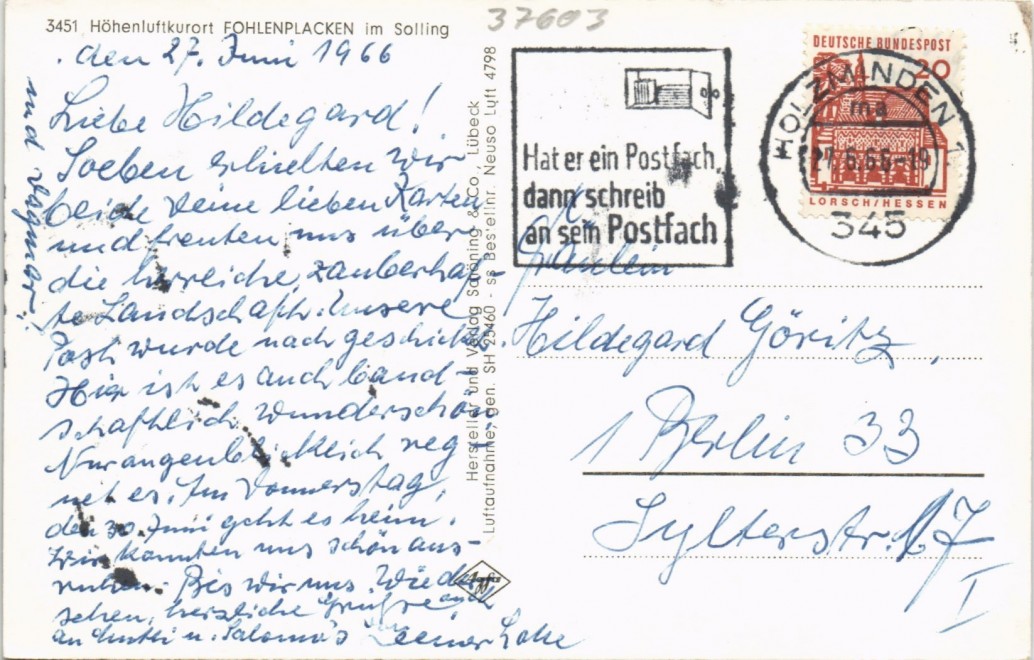 37603
3451 Höhenluftkurort FOHLENPLACKEN im Solling
den 27. Juni 1966
Liebe Hildegard!
Soeben erhielten wir
beide deine lieben Karten
und freuten uns über
die herreiche, zauberhaf-
te Landschaft. Unsere
Post wurde nachgeschickt.
Hier ist es auch land-
schaftlich wunderschön.
Nur augenblicklich reg-
net es. Am Donnerstag,
den 30. Juni geht es heim.
Wir konnten uns schön aus-
ruhen. Bis wir uns Wieder
sehen, herzliche Grüße auch
an Mutti u. Salomo's
und Dagmar.
Hersteller und Verlag Schöning & Co., Lübeck
Luftaufnahme, gen. SH 25460 - s2 Bestellnr. Neuso Luft 4798
Hat er ein Postfach,
dann schreib
an sein Postfach
DEUTSCHE BUNDESPOST
20
LORSCH/HESSEN
HOLZMINDEN 1
27.6.66-19
345
Fräulein
Hildegard Göritz,
1 Berlin 33
Sylterstr. 17
I